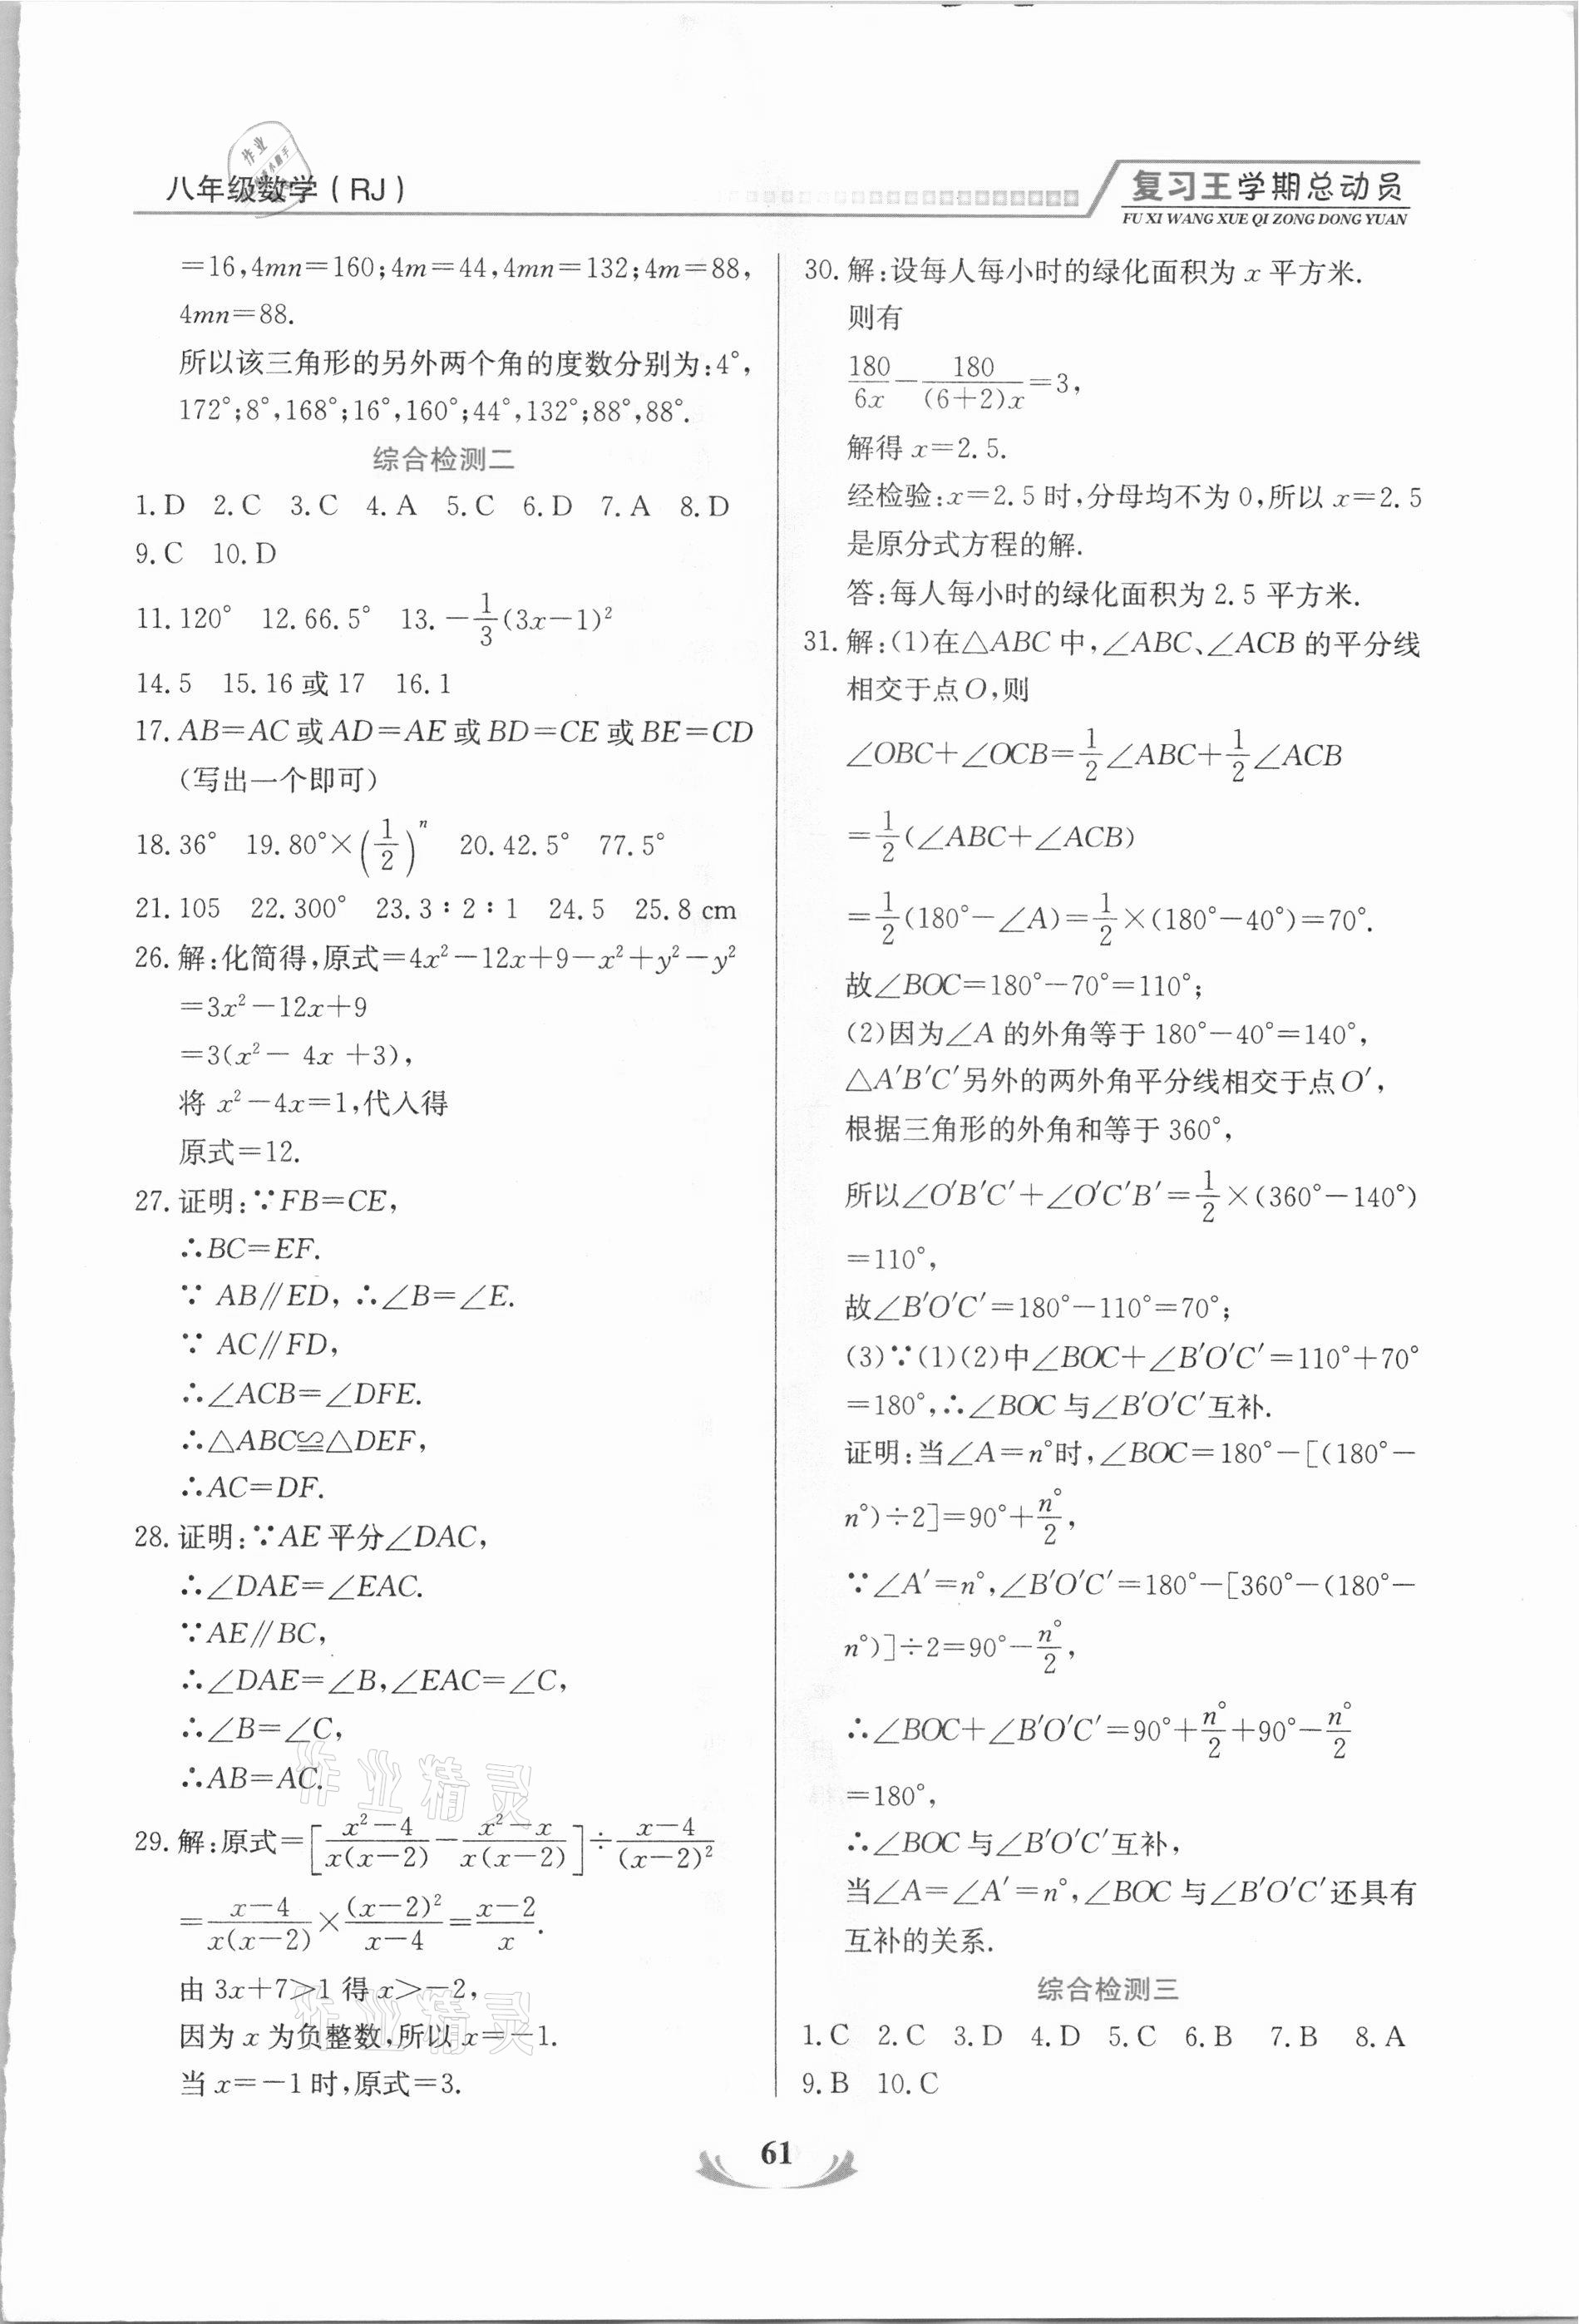 八年级数学(RJ)
复习王学期总动员
FU XI WANG XUE QI ZONG DONG YUAN
=16,4mn=160;4m=44,4mn=132;4m=88,
4mn=88.
所以该三角形的另外两个角的度数分别为:4°,
172°;8°,168°;16°,160°;44°,132°;88°,88°.
综合检测二
1.D 2.C 3.C 4.A 5.C 6.D 7.A 8.D
9.C 10.D
11.120° 12.66.5° 13.-\frac{1}{3}(3x-1)²
14.5 15.16或17 16.1
17.AB=AC或AD=AE或BD=CE或BE=CD
(写出一个即可)
18.36° 19.80°×(\frac{1}{2})^n 20.42.5° 77.5°
21.105 22.300° 23.3∶2∶1 24.5 25.8 cm
26.解:化简得,原式=4x²-12x+9-x²+y²-y²
=3x²-12x+9
=3(x²- 4x +3),
将 x²-4x=1,代入得
原式=12.
27.证明:∵FB=CE,
∴BC=EF.
∵ AB∥ED, ∴∠B=∠E.
∵ AC∥FD,
∴∠ACB=∠DFE.
∴△ABC≌△DEF,
∴AC=DF.
28.证明:∵AE平分∠DAC,
∴∠DAE=∠EAC.
∵AE∥BC,
∴∠DAE=∠B,∠EAC=∠C,
∴∠B=∠C,
∴AB=AC.
29.解:原式=[\frac{x²-4}{x(x-2)}-\frac{x²-x}{x(x-2)}]÷\frac{x-4}{(x-2)²}
=\frac{x-4}{x(x-2)}×\frac{(x-2)²}{x-4}=\frac{x-2}{x}.
由 3x+7>1 得 x>-2,
因为 x 为负整数,所以 x=-1.
当 x=-1时,原式=3.
30.解:设每人每小时的绿化面积为 x 平方米.
则有
\frac{180}{6x}-\frac{180}{(6+2)x}=3,
解得 x=2.5.
经检验:x=2.5时,分母均不为0,所以 x=2.5
是原分式方程的解.
答:每人每小时的绿化面积为2.5平方米.
31.解:(1)在△ABC中,∠ABC、∠ACB的平分线
相交于点O,则
∠OBC+∠OCB=\frac{1}{2}∠ABC+\frac{1}{2}∠ACB
=\frac{1}{2}(∠ABC+∠ACB)
=\frac{1}{2}(180°-∠A)=\frac{1}{2}×(180°-40°)=70°.
故∠BOC=180°-70°=110°;
(2)因为∠A的外角等于180°-40°=140°,
△A′B′C′另外的两外角平分线相交于点O′,
根据三角形的外角和等于360°,
所以∠O′B′C′+∠O′C′B′=\frac{1}{2}×(360°-140°)
=110°,
故∠B′O′C′=180°-110°=70°;
(3)∵(1)(2)中∠BOC+∠B′O′C′=110°+70°
=180°,∴∠BOC与∠B′O′C′互补.
证明:当∠A=n°时,∠BOC=180°-[(180°-
n°)÷2]=90°+\frac{n°}{2},
∵∠A′=n°,∠B′O′C′=180°-[360°-(180°-
n°)]÷2=90°-\frac{n°}{2},
∴∠BOC+∠B′O′C′=90°+\frac{n°}{2}+90°-\frac{n°}{2}
=180°,
∴∠BOC与∠B′O′C′互补,
当∠A=∠A′=n°,∠BOC与∠B′O′C′还具有
互补的关系.
综合检测三
1.C 2.C 3.D 4.D 5.C 6.B 7.B 8.A
9.B 10.C
作业精灵
作业精灵
61